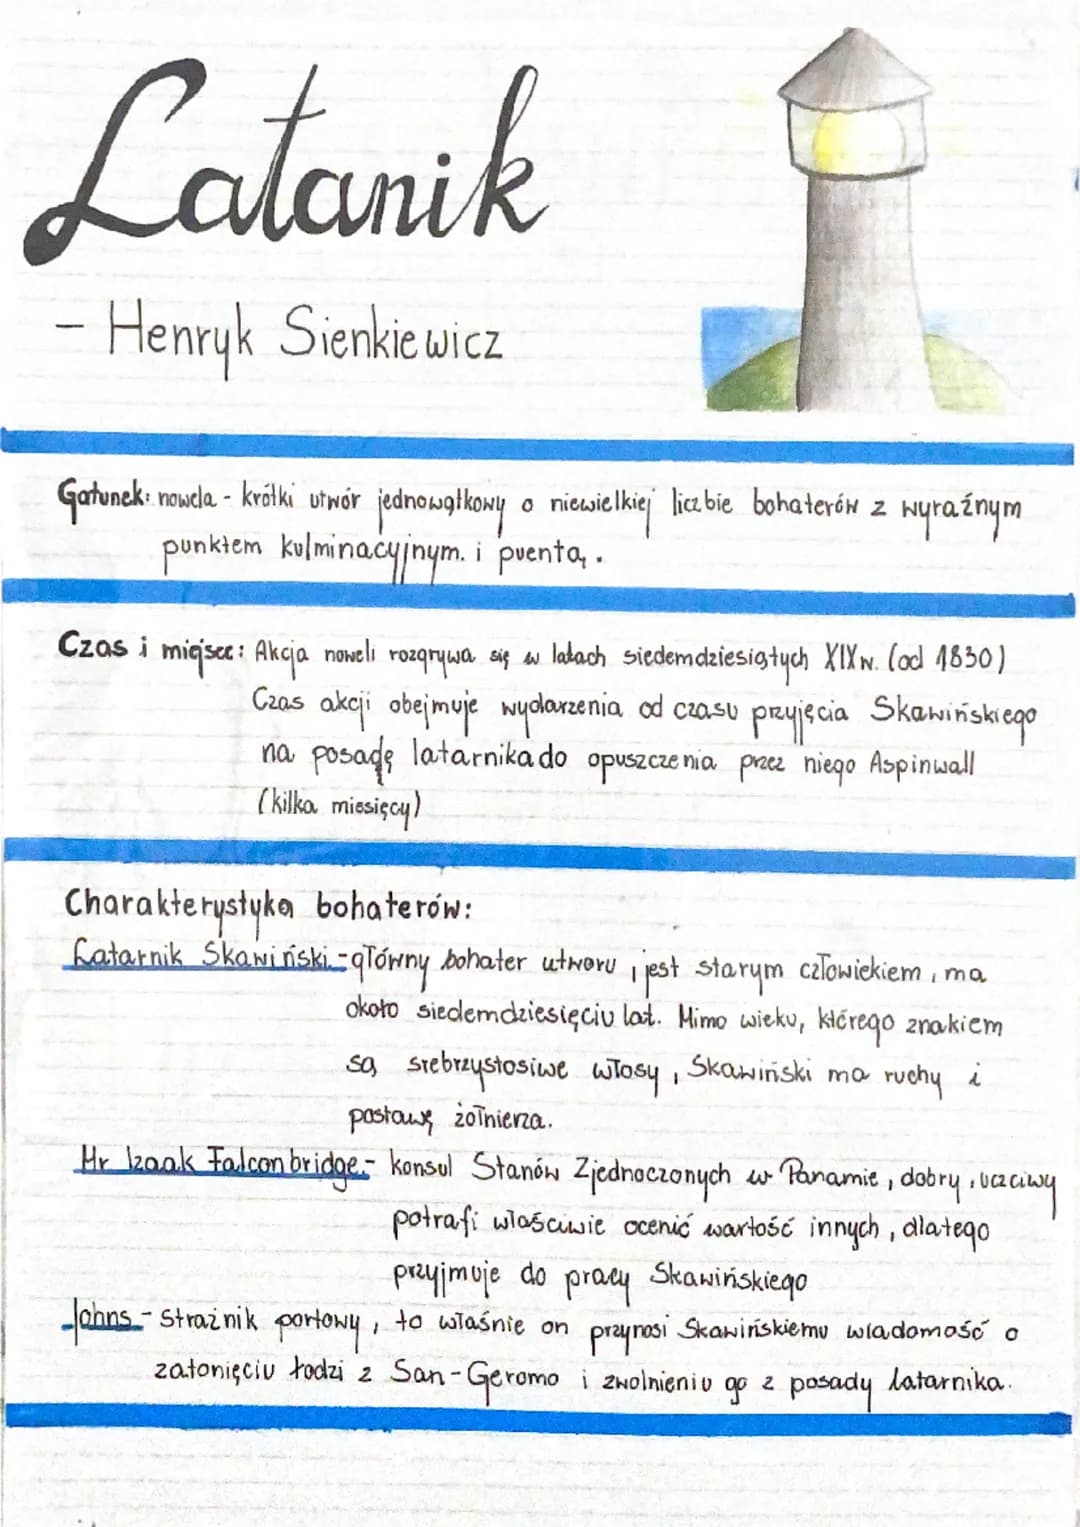 Latanik
- Henryk Sienkiewicz
Gatunek: nowela - krótki utwór jednowątkowy o niewielkiej liczbie bohaterów z wyraźnym
punktem kulminacyjnym. i puentą.
Czas i miejsce: Akcja noweli rozgrywa się w latach siedemdziesiątych XIX w. (od 1830)
Czas akcji obejmuje wydarzenia od czasu przyjęcia Skawińskiego
na posadę latarnika do opuszczenia przez niego Aspinwall
(kilka miesięcy)
Charakterystyka bohaterów:
Latarnik Skawiński - główny bohater utworu, jest starym człowiekiem, ma
około siedemdziesięciu lat. Mimo wieku, którego znakiem
są srebrzystosiwe włosy, Skawiński ma ruchy i
postawę żołnierza.
Mr Izaak Falconbridge - konsul Stanów Zjednoczonych w Panamie, dobry, uczciwy
potrafi właściwie ocenić wartość innych, dlatego
przyjmuje do pracy Skawińskiego
Johns - Strażnik portowy, to właśnie on przynosi Skawińskiemu wiadomość o
zatonięciu łodzi z San-Geromo i zwolnieniu go z posady latarnika.